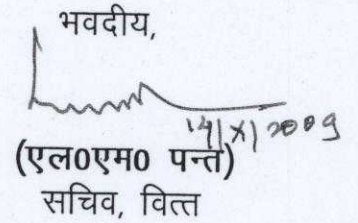 भवदीय,
14/X/2009
(एल0एम0 पन्त)
सचिव, वित्त